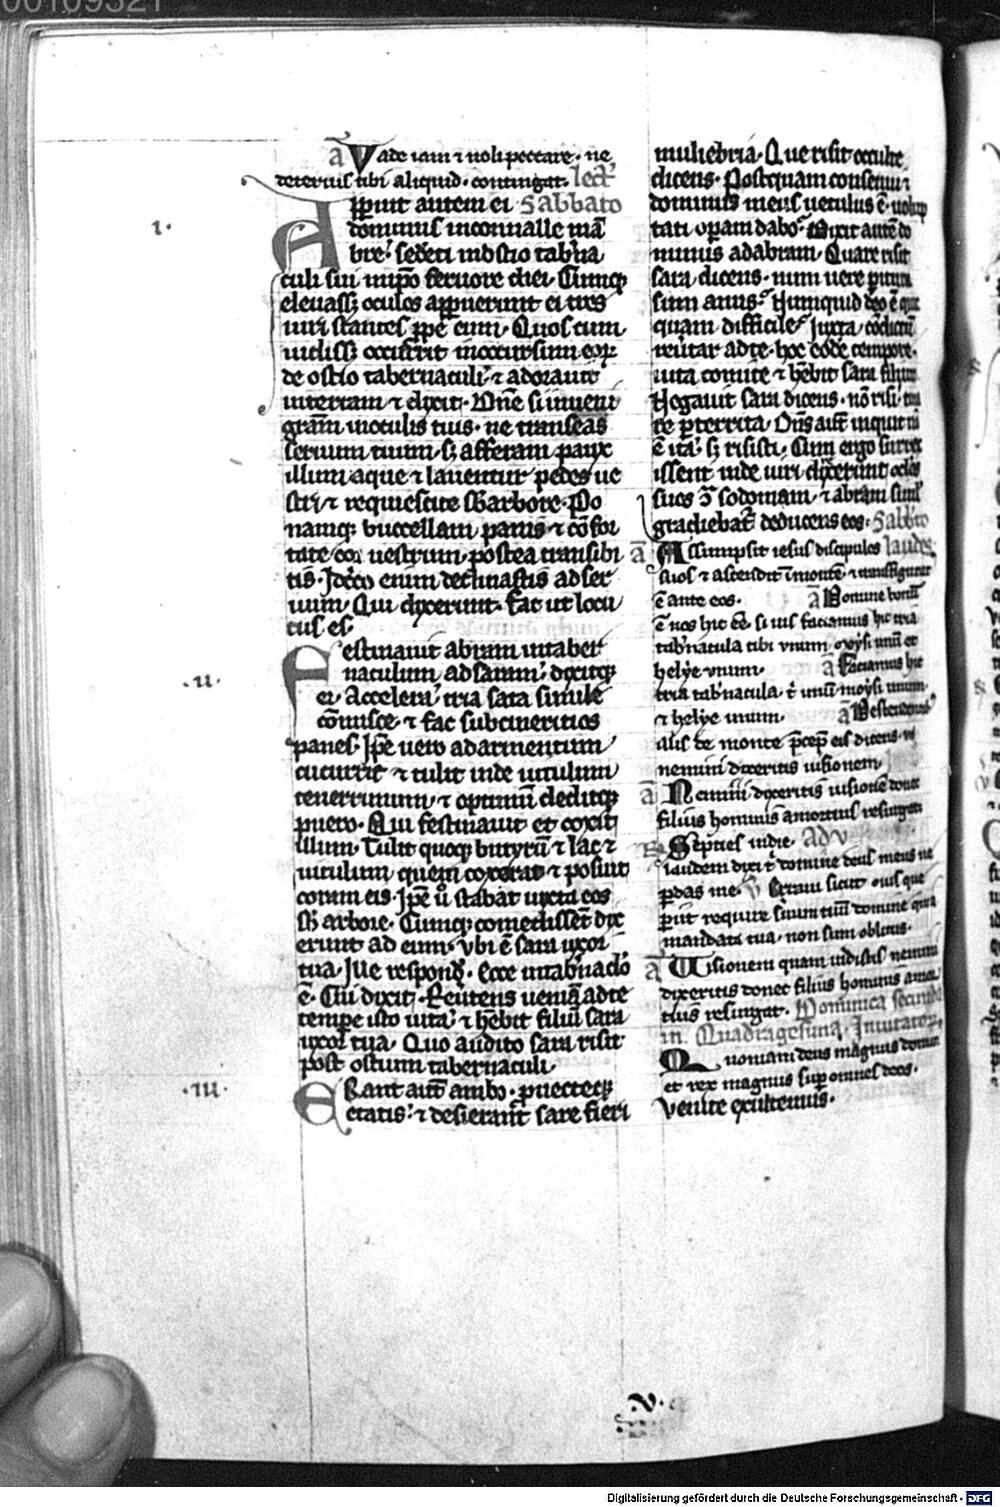 00109321
ā Vade iam ⁊ noli peccare· ne
deterius tibi aliquid· contingat· lect̉
Apparuit autem ei Sabbato
dominus in conualle mā
bre· sedenti in ostio tabn̄a
culi sui in ip̄o feruore diei· Cumq;
eleuass; oculos apparuerunt ei tres
uiri stantes ꝓpe eum· Quos cum
uidiss; occurrit in occursum eoꝝ
de ostio tabernaculi ⁊ adorauit
in terram ⁊ dixit· Dn̄e si inueni
gram̄ in oculis tuis· ne transeas
seruum tuum· s; afferam paux
illum aque ⁊ lauentur pedes ue
stri ⁊ requiescite sb̄ arbore· Po
namq; buccellam panis ⁊ cōfor
tate cor uestrum· postea transibi
tis· Idcirco enim declinastis ad ser
uum· Qui dixerunt· fac ut locu
tus es·
Festinauit abram in taber
naculum ad saram· dixitq;
ei· Accelera· tria sata simile
cōmisce· ⁊ fac subcinericios
panes· Ip̄e uero ad armentum
cucurrit ⁊ tulit inde uitulum
tenerrimum ⁊ optimū deditq;
puero· Qui festinauit et coxit
illum· Tulit quoq; butyrū ⁊ lac ⁊
uitulum quem coxerat ⁊ posuit
coram eis· Ip̄e ů stabat iuxta eos
sb̄ arbore· Cumq; comedissēt dix
erunt ad eum· vbi ē sara uxor
tua· Ille respond̄· ecce in tab̄nac̄lo
ē· Cui dixit· Reuertens ueniā ad te
tempore isto uita ⁊ hēbit filiū sara
uxor tua· Quo audito sara risit
post ostium tabernaculi·
ERant aut̄ ambo· ꝓuecteq;
etatis· ⁊ desierant sare fieri
muliebria· Que risit occulte
dicens· Postquam consenui ⁊
dominus meus uetulus ē· uolup
tati operam dabo· Dixit autē do
minus ad abram· Quare risit
sara dicens· num uere paritura
sum anus· Numquid deo ē quic
quam difficile· Iuxta cōdictū
reūtar ad te· hoc eodē tempore·
uita comite ⁊ hēbit sara filium
Negauit sara dicens· nō risi· timo
re ꝑterrita· Dn̄s aut̄ inquit nō
ē ita· s; risisti· Cum ergo surrex
issent inde uiri dixerunt oculos
suos 9̄ sodomam· ⁊ abram simul
gradiebat̄ deducens eos· Sabb̄to
ā Assumpsit iesus discipulos laudes
suos ⁊ ascendit ī monte· ⁊ transfiguratꝰ
ē ante eos· ā Domine bonū
ē nos hic ēē· si uis faciamus hic tria
tab̄nacula tibi vnum· moysi unū et
helye vnum· ā Faciamus hic
tria tab̄nacula· t̄ unū· moysi unum·
⁊ helye unum· ā Descendentib
alis de monte p̄cep̄ eis dicens· ne
nemini dixeritis uisionem
ā Nemini dixeritis uisionē donec
filius hominis a mortuis resurgat
R Septies in die· Ad v
laudem dixi t̄ domine deus meus ne
ꝑdas me· V Erraui sicut ouis que
periit require seruum tuū domine quia
mandata tua· non sum oblitus·
ā Visionem quam uidistis nemini
dixeritis donec filius hominis a mor
tuis resurgat· Dominica secunda
in Quadragesima· Inuitator̄
Quoniam deus magnus dominus
et rex magnus super omnes deos·
Venite exultemus·
·I·
·II·
·III·
V·
Digitalisierung gefördert durch die Deutsche Forschungsgemeinschaft - DFG